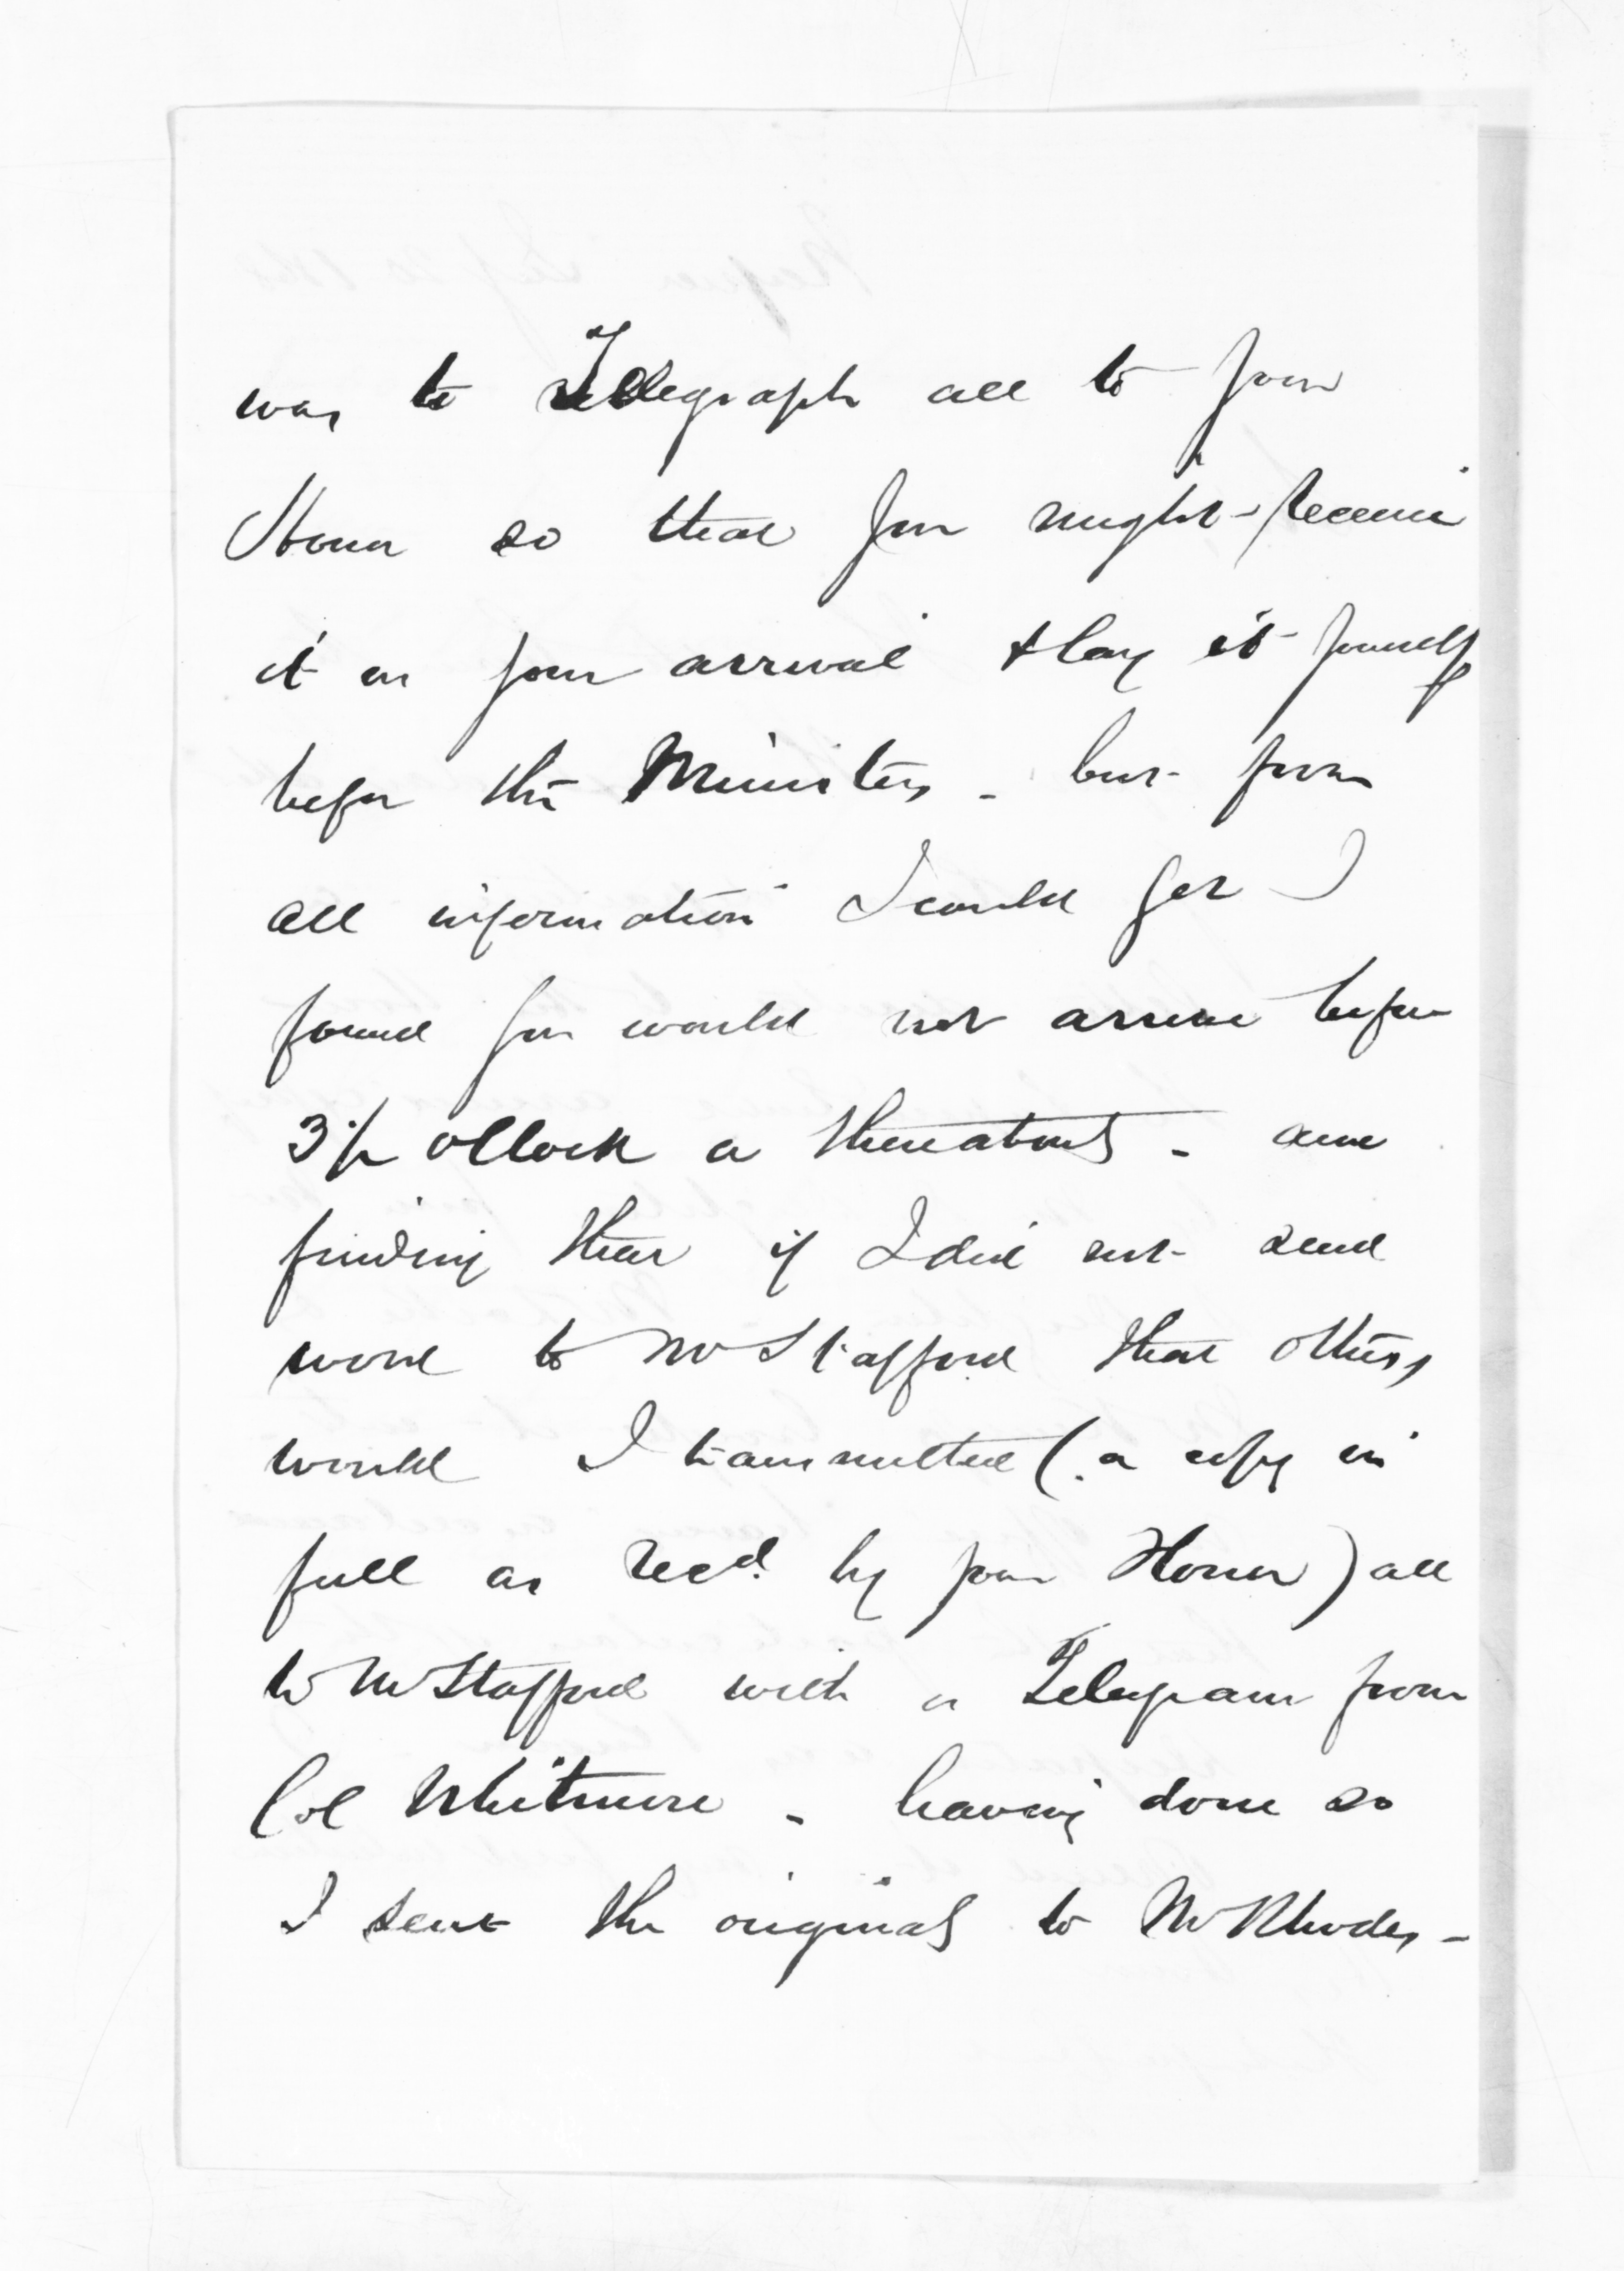 was to Telegraph all to your
Honor so that you might receive
it on your arrival & lay it yourself
before the Ministers - but from
all information I could get I
found you would not arrive before
3½ oClock or thereabouts - and
finding that if I did not send
word to Mr Stafford that others
would I transmitted (a copy in
full as recd. by your Honor) all
to Mr Stafford with a Telegram from
Col Whitmore - having done so
I sent the originals to Mr Rhodes -